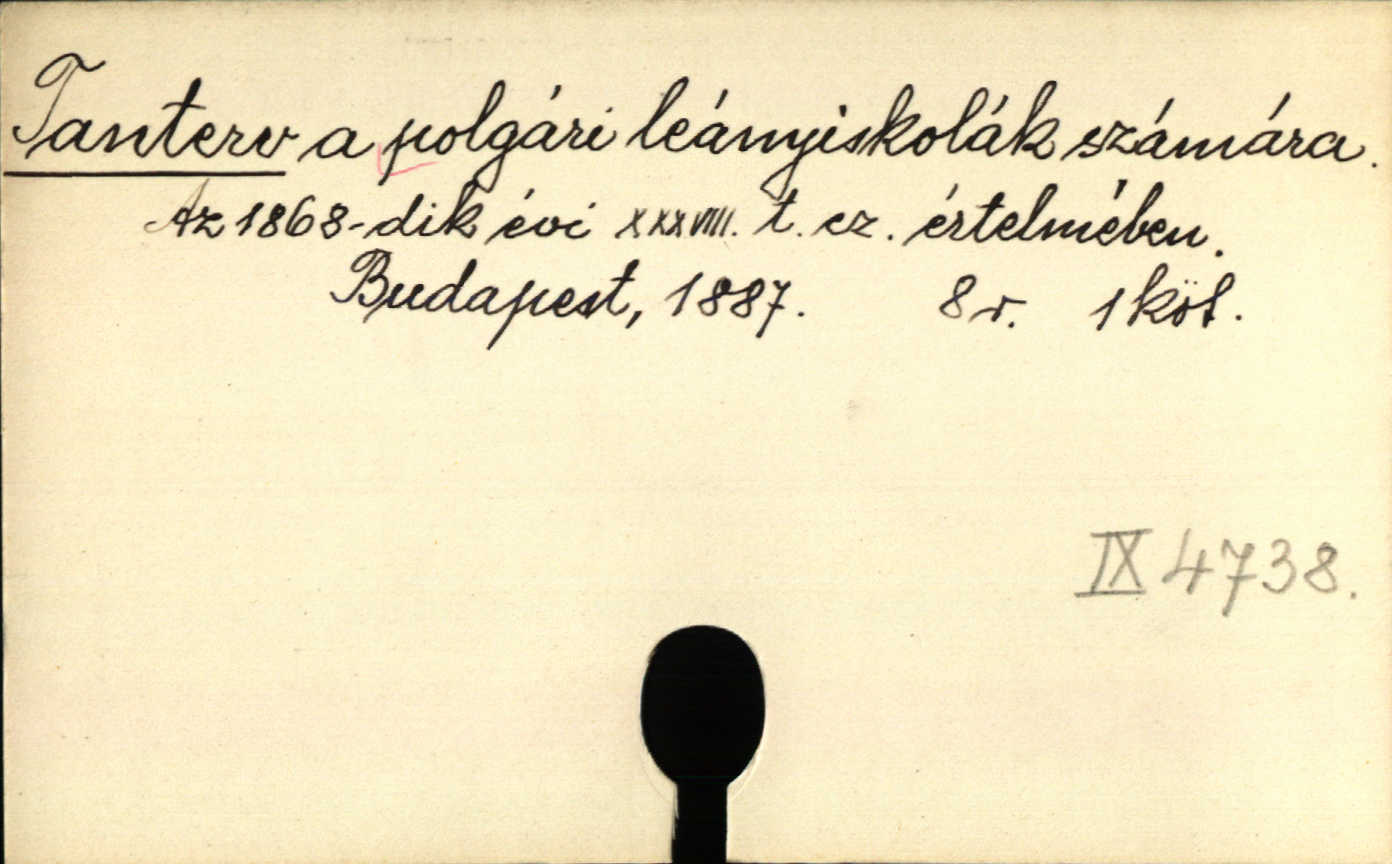 Tanterv a polgári leányiskolák számára.
Az 1868-dik évi XXXVIII. t. cz. értelmében.
Budapest, 1887. 8 r. 1 köt.
IX 4738.